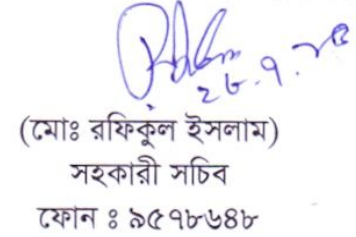 ২৮.৭.২৫
(মোঃ রফিকুল ইসলাম)
সহকারী সচিব
ফোন ঃ ৯৫৭৮৬৪৮